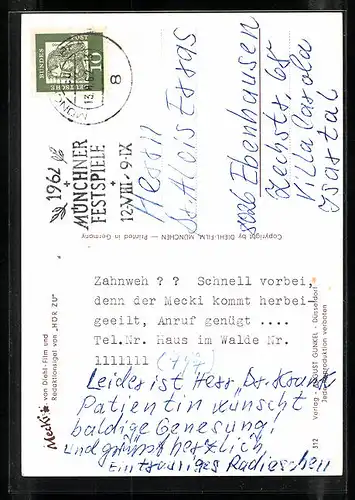 MÜNCHEN
10
DEUTSCHE
BUNDES
POST
8
1962
+
MÜNCHNER
FESTSPIELE
12.VIII - 9.IX
Herrn
Dr. Alois
8026 Ebenhausen
Zechstr. 68
Villa Casola
Isartal
Copyright by DIEHL-FILM, MÜNCHEN — Printed in Germany
Zahnweh ? ?  Schnell vorbei,
denn der Mecki kommt herbei
geeilt, Anruf genügt ....
Tel.Nr. Haus im Walde Nr.
1111111
Leider ist Herr "Dr. Krank
Patientin wünscht
baldige Genesung!
und grüsst herzlich,
Ein trauriges Radieschen
Mecki
von Diehl-Film und
Redaktionsigel von „HÖR ZU"
312
Verlag AUGUST GUNKEL - Düsseldorf
Jede Reproduktion verboten